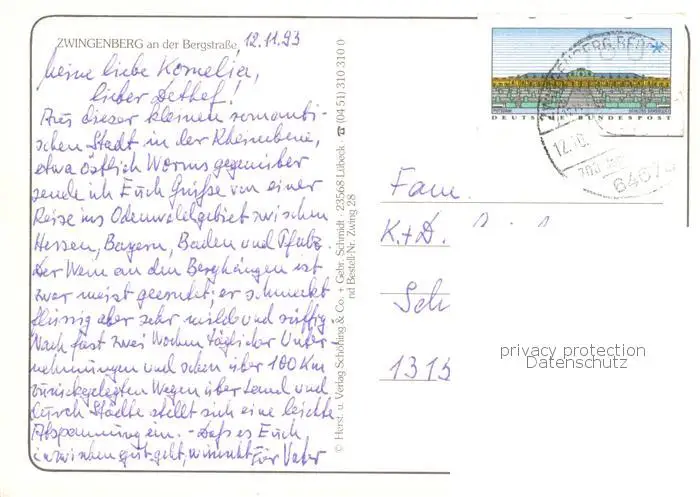 ZWINGENBERG an der Bergstraße, 12.11.93
Meine liebe Kornelia,
lieber Dethef!
Aus dieser kleinen romanti-
schen Stadt in der Rheinebene,
etwa östlich Worms gegenüber
sende ich Euch Grüße von einer
Reise ins Odenwaldgebiet zwischen
Hessen, Bayern, Baden und Pfalz.
Der Wein an den Berghängen ist
zwar meist geerntet; er schmeckt
flüssig aber sehr milde und süffig.
Nach fast zwei Wochen täglicher Unter-
nehmungen und schon über 100 Km
zurückgelegten Wegen über Land und
durch Städte stellt sich eine leichte
Abspannung ein. - Daß es Euch
inzwischen gut geht, wünscht Für Vater
© Herst. u. Verlag Schöning & Co. + Gebr. Schmidt · 23568 Lübeck · ☎ (04 51) 310 310 0
nd Bestell-Nr. Zwing 28
DEUTSCHE BUNDESPOST
ZWINGENBERG, BERGSTR
12.10.
6467
Fam.
K+D.
Sch
1315
privacy protection
Datenschutz